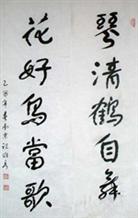 琴清鹤自舞
花好鸟当歌